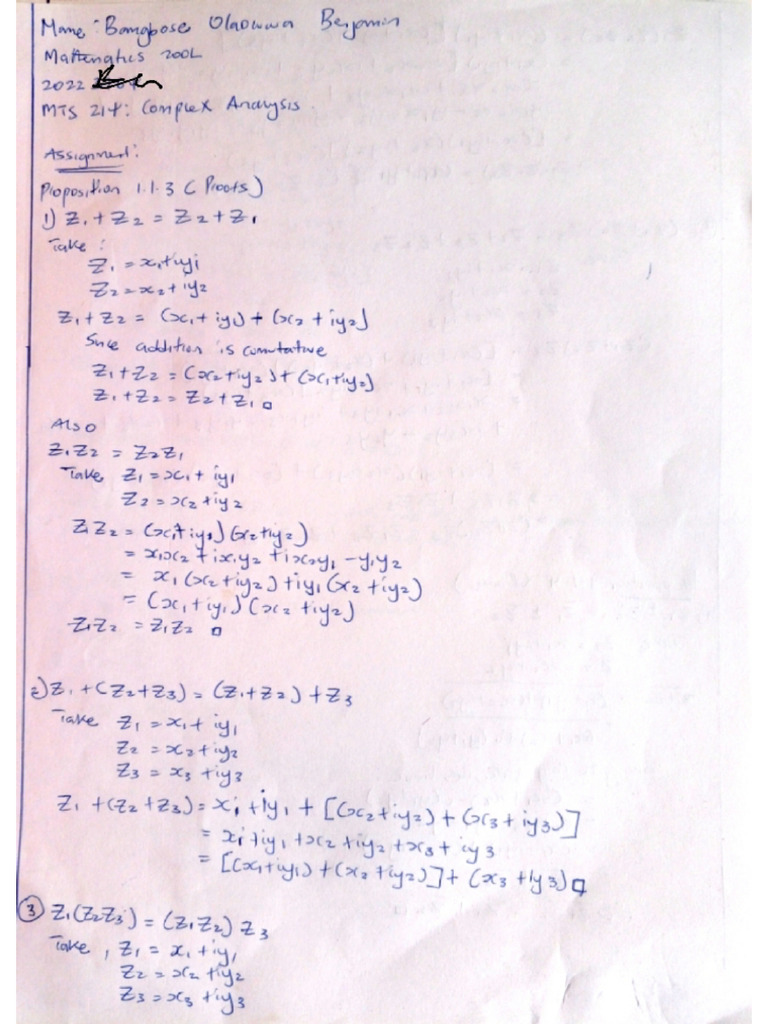 Name: Bamgbose Olaoluwa Benjamin
Mathematics 200L
2022
MTS 214: Complex Analysis.
Assignment:
Proposition 1.1.3 (Proofs)
1) Z₁ + Z₂ = Z₂ + Z₁
Take:
Z₁ = x₁ + iy₁
Z₂ = x₂ + iy₂
Z₁ + Z₂ = (x₁ + iy₁) + (x₂ + iy₂)
Since addition is comutative
Z₁ + Z₂ = (x₂ + iy₂) + (x₁ + iy₂)
Z₁ + Z₂ = Z₂ + Z₁ □
Also
Z₁Z₂ = Z₂Z₁
Take, Z₁ = x₁ + iy₁
Z₂ = x₂ + iy₂
Z₁Z₂ = (x₁ + iy₁)(x₂ + iy₂)
= x₁x₂ + ix₁y₂ + ix₂y₁ - y₁y₂
= x₁(x₂ + iy₂) + iy₁(x₂ + iy₂)
= (x₁ + iy₁)(x₂ + iy₂)
Z₁Z₂ = Z₁Z₂ □
2) Z₁ + (Z₂ + Z₃) = (Z₁ + Z₂) + Z₃
Take Z₁ = x₁ + iy₁
Z₂ = x₂ + iy₂
Z₃ = x₃ + iy₃
Z₁ + (Z₂ + Z₃) = x₁ + iy₁ + [(x₂ + iy₂) + (x₃ + iy₃)]
= x₁ + iy₁ + x₂ + iy₂ + x₃ + iy₃
= [(x₁ + iy₁) + (x₂ + iy₂)] + (x₃ + iy₃) □
3 Z₁(Z₂Z₃) = (Z₁Z₂)Z₃
Take, Z₁ = x₁ + iy₁
Z₂ = x₂ + iy₂
Z₃ = x₃ + iy₃